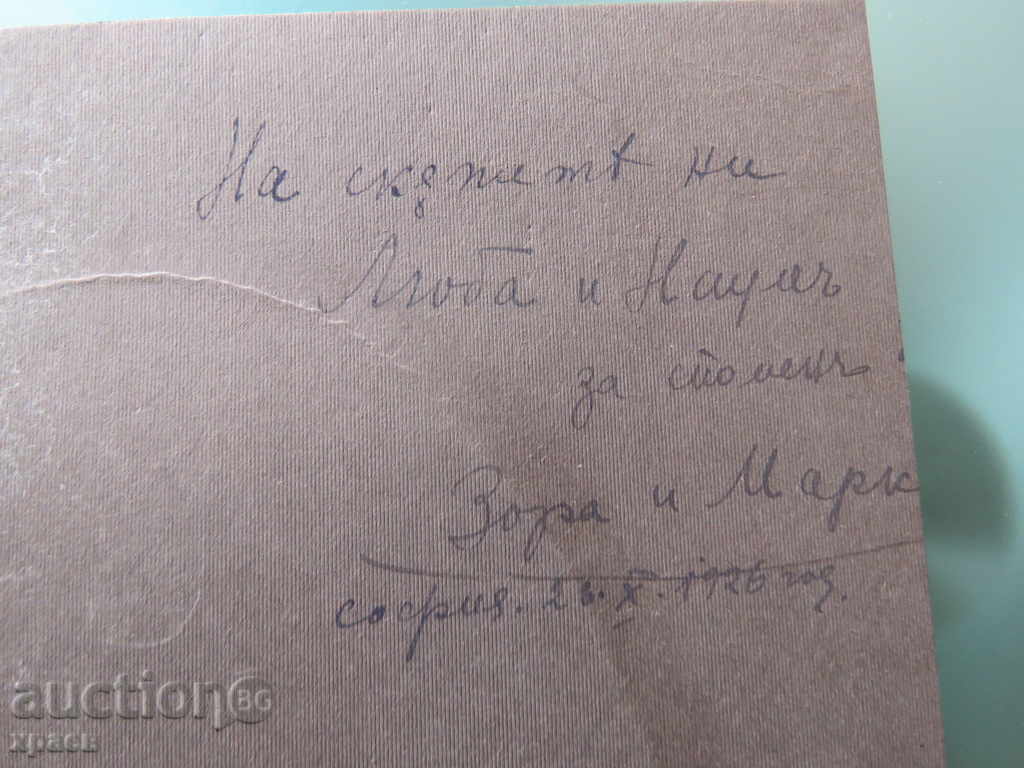 На скѫпитѣ ни
Люба и Наумъ
за споменъ
Зора и Марк
София. 26.X.1926 год.
auctionBG
хрась